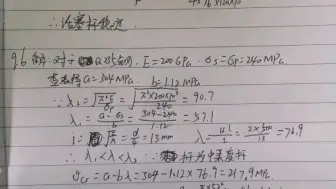 ∴ 活塞杆稳定
9.6 解: 对于Q235钢, E=200GPa. σs=σp=240MPa
查表得 a=304MPa. b=1.12MPa
∴ λ₂=√(π²E/σp)=√(π²×200×10³/240)=90.7
λ₁=(a-σs)/b=(304-240)/1.12=57.1
i=√(I/A)=d/4=13mm λ=μl/i=2×500/13=76.9
∴ λ₁<λ<λ₂ ∴ 杆为中柔度杆
σcr=a-bλ=304-1.12×76.9=217.9MPa